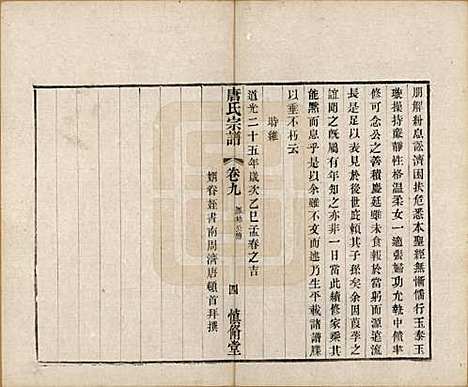 朋解紛息訟濟困扶危悉本聖經無慚懦行玉泰玉
璈操持嚴靜性格溫柔女一適張婦功允執中饋率
修可念公之善積慶延雖未食報於當躬而源遠流
長是足以裕後世庇賴其子孫矣余因葭莩之
誼聞之既屬有年知之亦非一日當此續修家乘其
能默而息乎是以余雖不文而述乃生平載諸譜牒
以垂不朽云
時維
道光二十五年歲次乙巳孟春之吉
姻眷姪書南周濟唐頓首拜撰
唐氏宗譜
卷九
四
慎脩堂